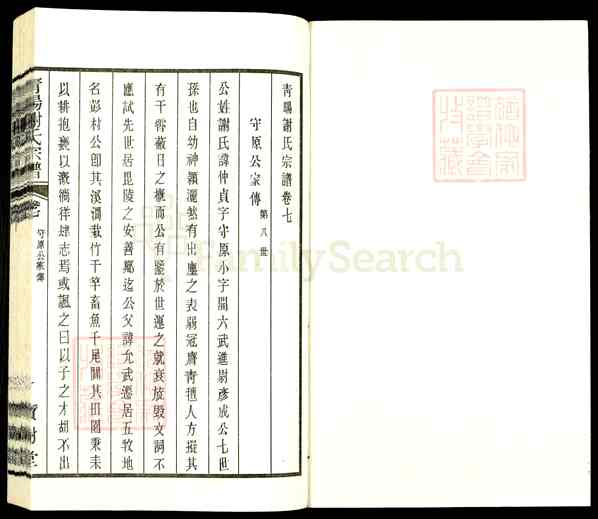 青暘謝氏宗譜卷七
守原公家傳 第八世
公姓謝氏諱仲貞字守原小字閏六武進尉彥成公七世
孫也自幼神穎灑然有出塵之表弱冠膺青氊人方擬其
有干霄蔽日之概而公有鑒於世運之就衰放毀文詞不
應試先世居毘陵之安善鄉迄公父諱允武遷居五牧地
名彭村公卽其溪澗栽竹千竿畜魚千尾闢其田園秉耒
以耕抱甕以灌徜徉肆志焉或諷之曰以子之才胡不出
青暘謝氏宗譜
卷七
守原公家傳
一
寶樹堂
FamilySearch